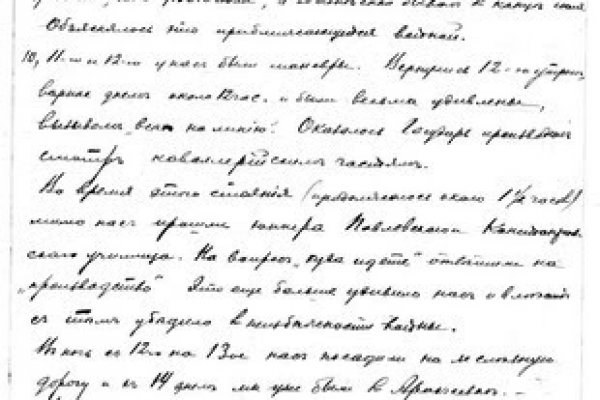 Объяснялось это приближающейся войной.
10, 11-го и 12-го у нас были маневры. Вернулись 12-го утром,
вернее днем около 12 час. и были весьма удивлены,
вызовом "всех на линию". Оказалось Государь производил
смотр кавалерийским частям.
Во время этого стояния (продолжалось около 1 1/2 часов)
мимо нас прошли юнкера Павловского
училища. На вопрос "куда идете" отвечали на
"производство" Это еще больше удивило нас и
с тем убедило в неизбежности войны.
В ночь с 12го на 13ое нас посадили на железную
дорогу и 14 днем мы уже были в